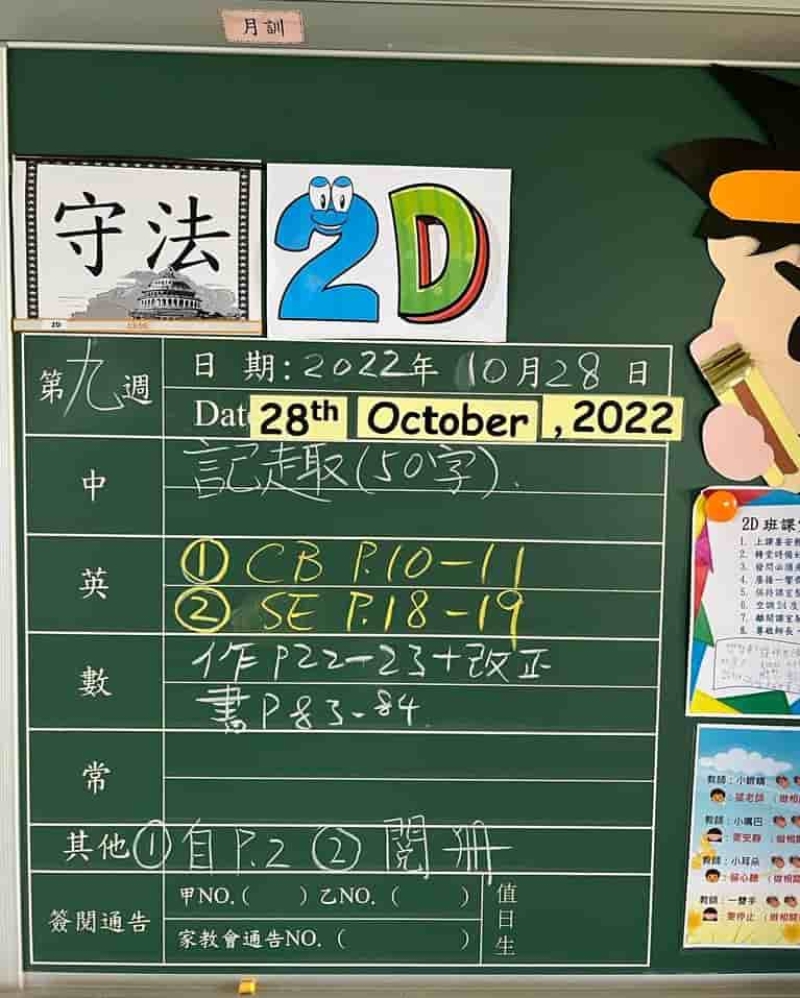 月訓
守法
2D
第九週
日 期:2022年 10月28日
Dat 28th October , 2022
中
記趣取(50字).
英
① CB P.10-11
② SE P.18-19
數
作P22-23+改正
書P83-84.
常
其他 ①自P.2 ②閱冊
簽閱通告
甲NO.( ) 乙NO.( )
家教會通告NO.( )
值日生
2D 班課
1.
2.
3.
4.
5.
6.
7.
8.
教師:小眼睛
教師:小嘴巴
教師:小耳朵
教師:一雙手